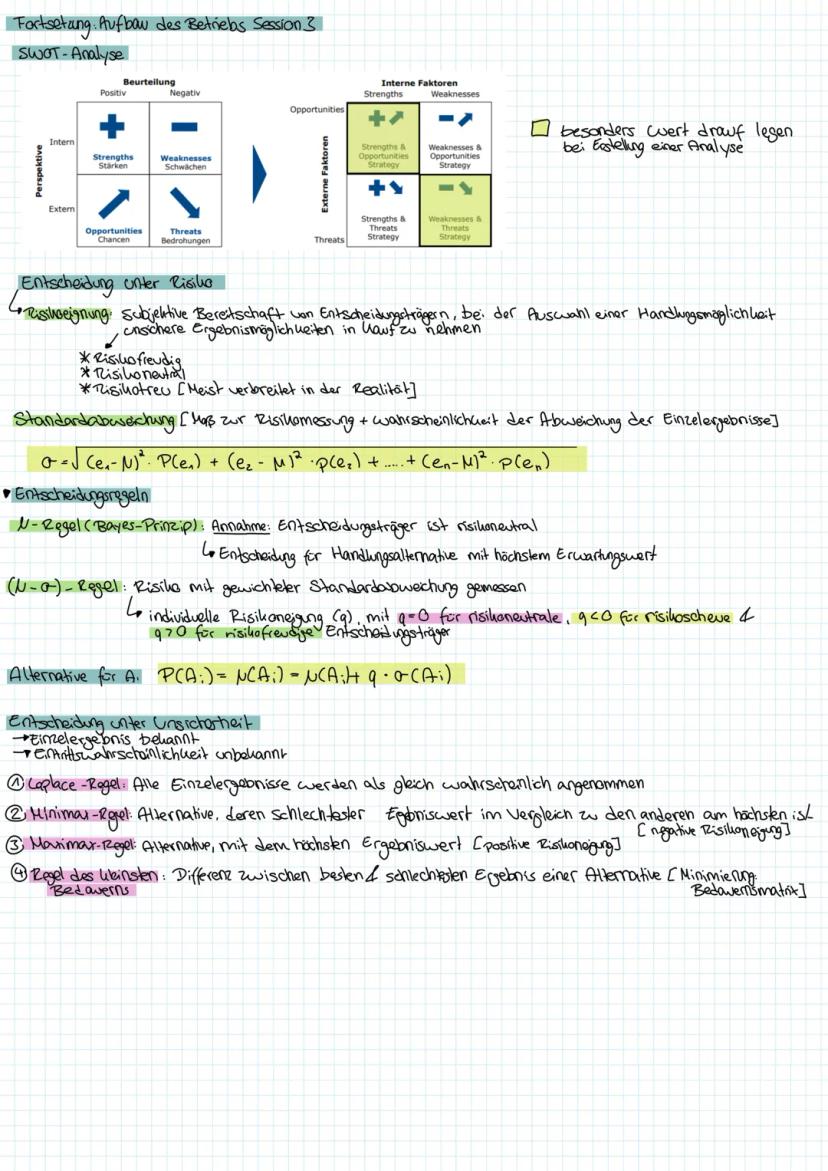 Fortsetung: Aufbau des Betriebs Session 3
SWOT-Analyse
Beurteilung
Positiv Negativ
Perspektive
Intern
Extern
Strengths
Stärken
Weaknesses
Schwächen
Opportunities
Chancen
Threats
Bedrohungen
Interne Faktoren
Strengths Weaknesses
Externe Faktoren
Opportunities
Threats
Strengths &
Opportunities
Strategy
Weaknesses &
Opportunities
Strategy
Strengths &
Threats
Strategy
Weaknesses &
Threats
Strategy
besonders Wert drauf legen
bei Erstellung einer Analyse
Entscheidung unter Risiko
Risikoeignung: Subjektive Bereitschaft von Entscheidungsträgern, bei der Auswahl einer Handlungsmöglichkeit
unsichere Ergebnismöglichkeiten in Kauf zu nehmen
* Risikofreudig
* Risikoneutral
* Risikotreu [Meist verbreitet in der Realität]
Standardabweichung [Maß zur Risikomessung + Wahrscheinlichkeit der Abweichung der Einzelergebnisse]
σ = √(e₁-μ)² · P(e₁) + (e₂ - μ)² · p(e₂) + ..... + (en-μ)² · p(en)
Entscheidungsregeln
μ-Regel (Bayes-Prinzip): Annahme: Entscheidungsträger ist risikoneutral
↳ Entscheidung für Handlungsalternative mit höchstem Erwartungswert
(μ-σ)-Regel: Risiko mit gewichteter Standardabweichung gemessen
↳ individuelle Risikoneigung (q), mit q=0 für risikoneutrale, q<0 für risikoscheue &
q>0 für risikofreudige Entscheidungsträger
Alternative für A: P(Ai) = μ(Ai) = μ(Ai) + q · σ(Ai)
Entscheidung unter Unsicherheit
→ Einzelergebnis bekannt
→ Eintrittswahrscheinlichkeit unbekannt
① Laplace-Regel: Alle Einzelergebnisse werden als gleich wahrscheinlich angenommen
② Minimax-Regel: Alternative, deren schlechtester Egbniswert im Vergleich zu den anderen am höchsten ist
[negative Risikoneigung]
③ Maximax-Regel: Alternative, mit dem höchsten Ergebniswert [positive Risikoneigung]
④ Regel des kleinsten: Differenz zwischen besten & schlechtesten Ergebnis einer Alternative [Minimierung:
Bedauerns Bedauernsmatrix]